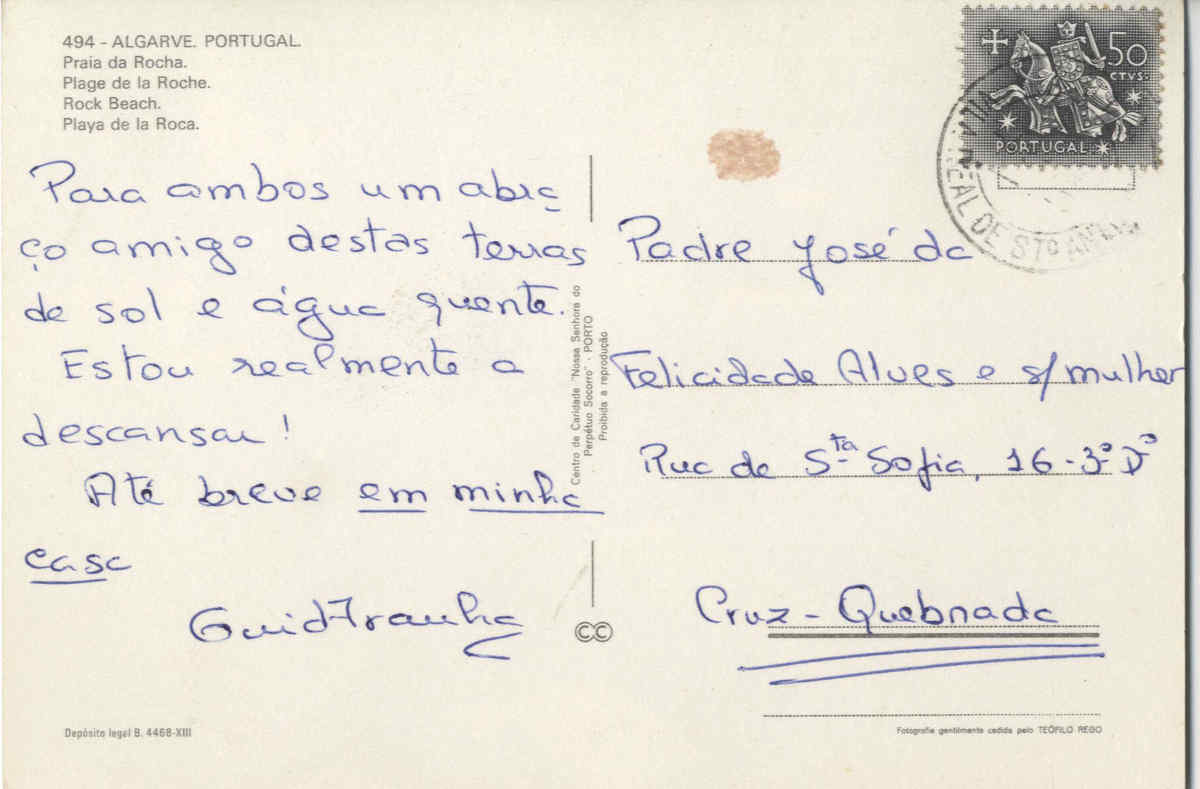 494 - ALGARVE. PORTUGAL.
Praia da Rocha.
Plage de la Roche.
Rock Beach.
Playa de la Roca.
50
CTVS.
PORTUGAL
REAL DE STº
Para ambos um abra
ço amigo destas terras
de sol e água quente.
Estou realmente a
descansar!
Até breve em minha
casa
Centro de Caridade "Nossa Senhora do
Perpétuo Socorro" - PORTO
Proibida a reprodução
Padre José da
Felicidade Alves e s/ mulher
Rua de Sta Sofia, 16-3º Dº
Cruz-Quebrada
CC
Depósito legal B. 4468-XIII
Fotografia gentilmente cedida pelo TEÓFILO REGO